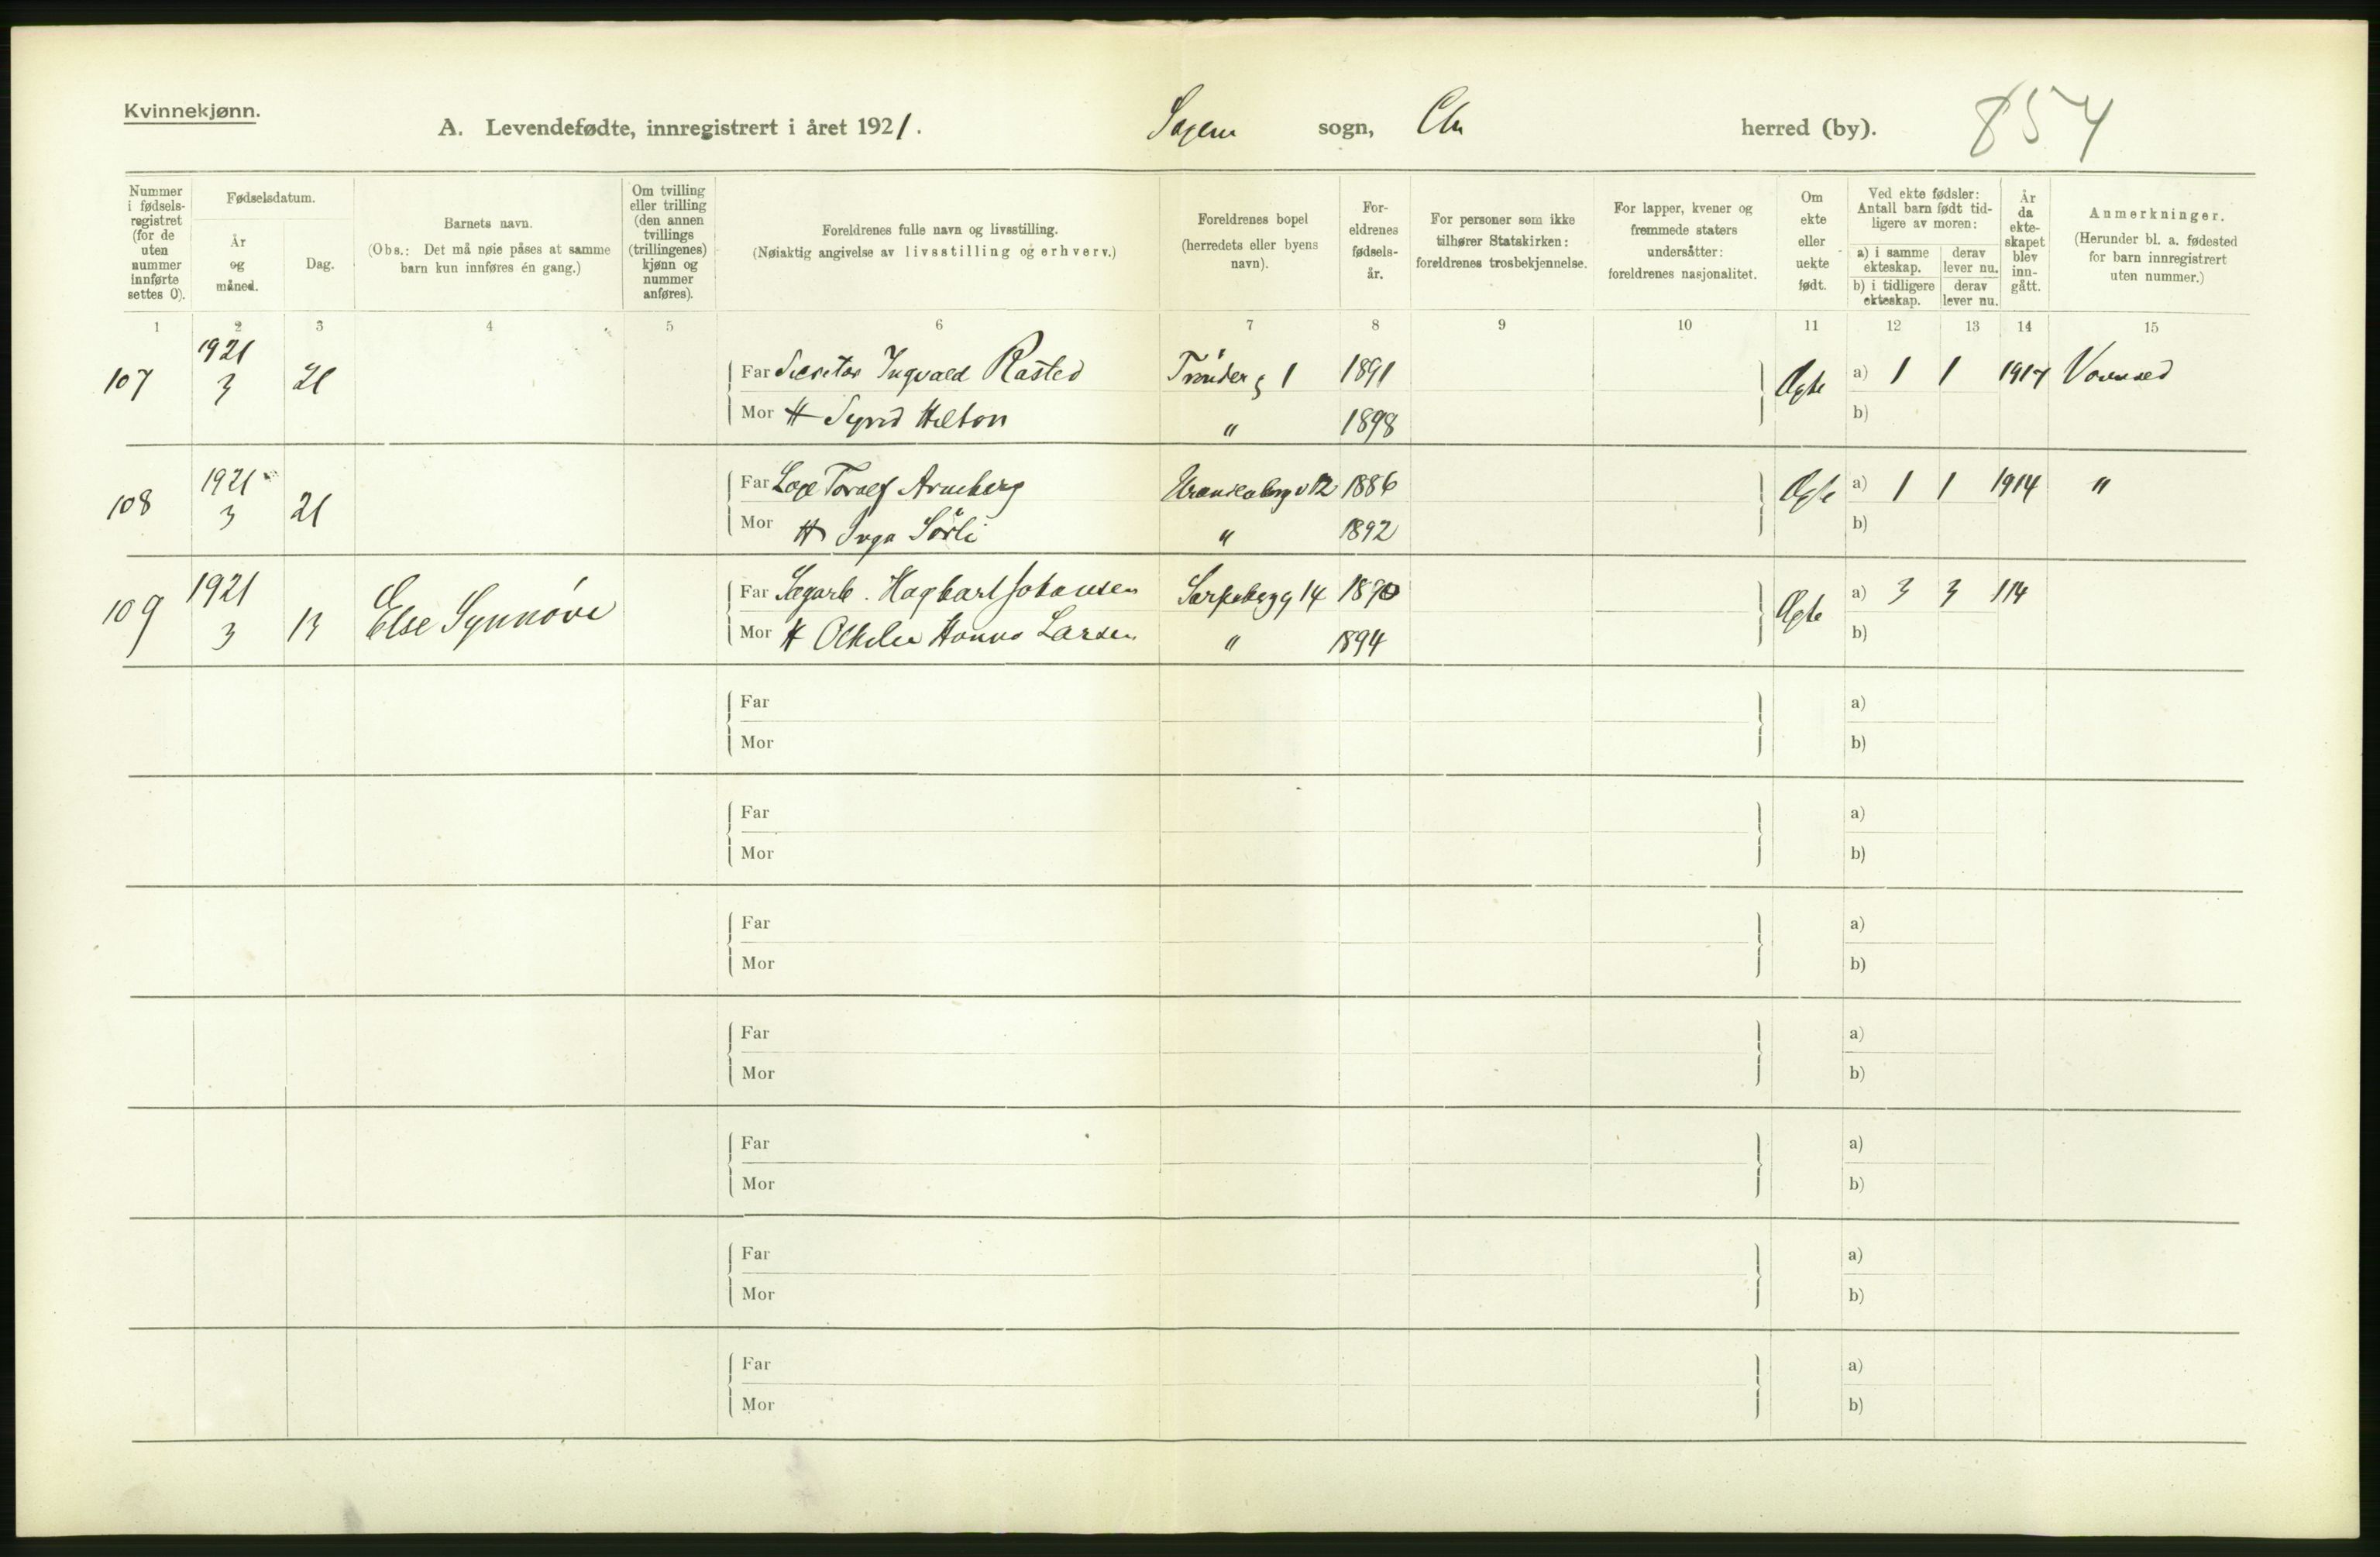 Kvinnekjønn.
A. Levendefødte, innregistrert i året 1921. Sagene sogn, Chr herred (by). 854
Nummer i fødselsregistret (for de uten nummer innførte settes 0).
Fødselsdatum.
År og måned.
Dag.
Barnets navn.
(Obs.: Det må nøie påses at samme barn kun innføres én gang.)
Om tvilling eller trilling (den annen tvillings (trillingenes) kjønn og nummer anføres).
Foreldrenes fulle navn og livsstilling.
(Nøiaktig angivelse av livsstilling og erhverv.)
Foreldrenes bopel (herredets eller byens navn).
Foreldrenes fødselsår.
For personer som ikke tilhører Statskirken: foreldrenes trosbekjennelse.
For lapper, kvener og fremmede staters undersåtter: foreldrenes nasjonalitet.
Om ekte eller uekte født.
Ved ekte fødsler: Antall barn født tidligere av moren:
a) i samme ekteskap.
derav lever nu.
b) i tidligere ekteskap.
derav lever nu.
År da ekteskapet blev inngått.
Anmerkninger.
(Herunder bl. a. fødested for barn innregistrert uten nummer.)
1 2 3 4 5 6 7 8 9 10 11 12 13 14 15
107 1921 3 21 Far Ingvald Rasted Trønder g 1 1891 Ægte a) 1 1 1917
Mor H Sigrid Helton " 1898 b)
108 1921 3 21 Far Toralf Arneberg 12 1886 Ægte a) 1 1 1914 "
Mor H Inga Sørli " 1892 b)
109 1921 3 13 Else Synnøve Far Hagbart Johansen Sarpsborg g 14 1890 Ægte a) 3 3 114
Mor H Hanna Larsen " 1894 b)
Far a)
Mor b)
Far a)
Mor b)
Far a)
Mor b)
Far a)
Mor b)
Far a)
Mor b)
Far a)
Mor b)
Far a)
Mor b)